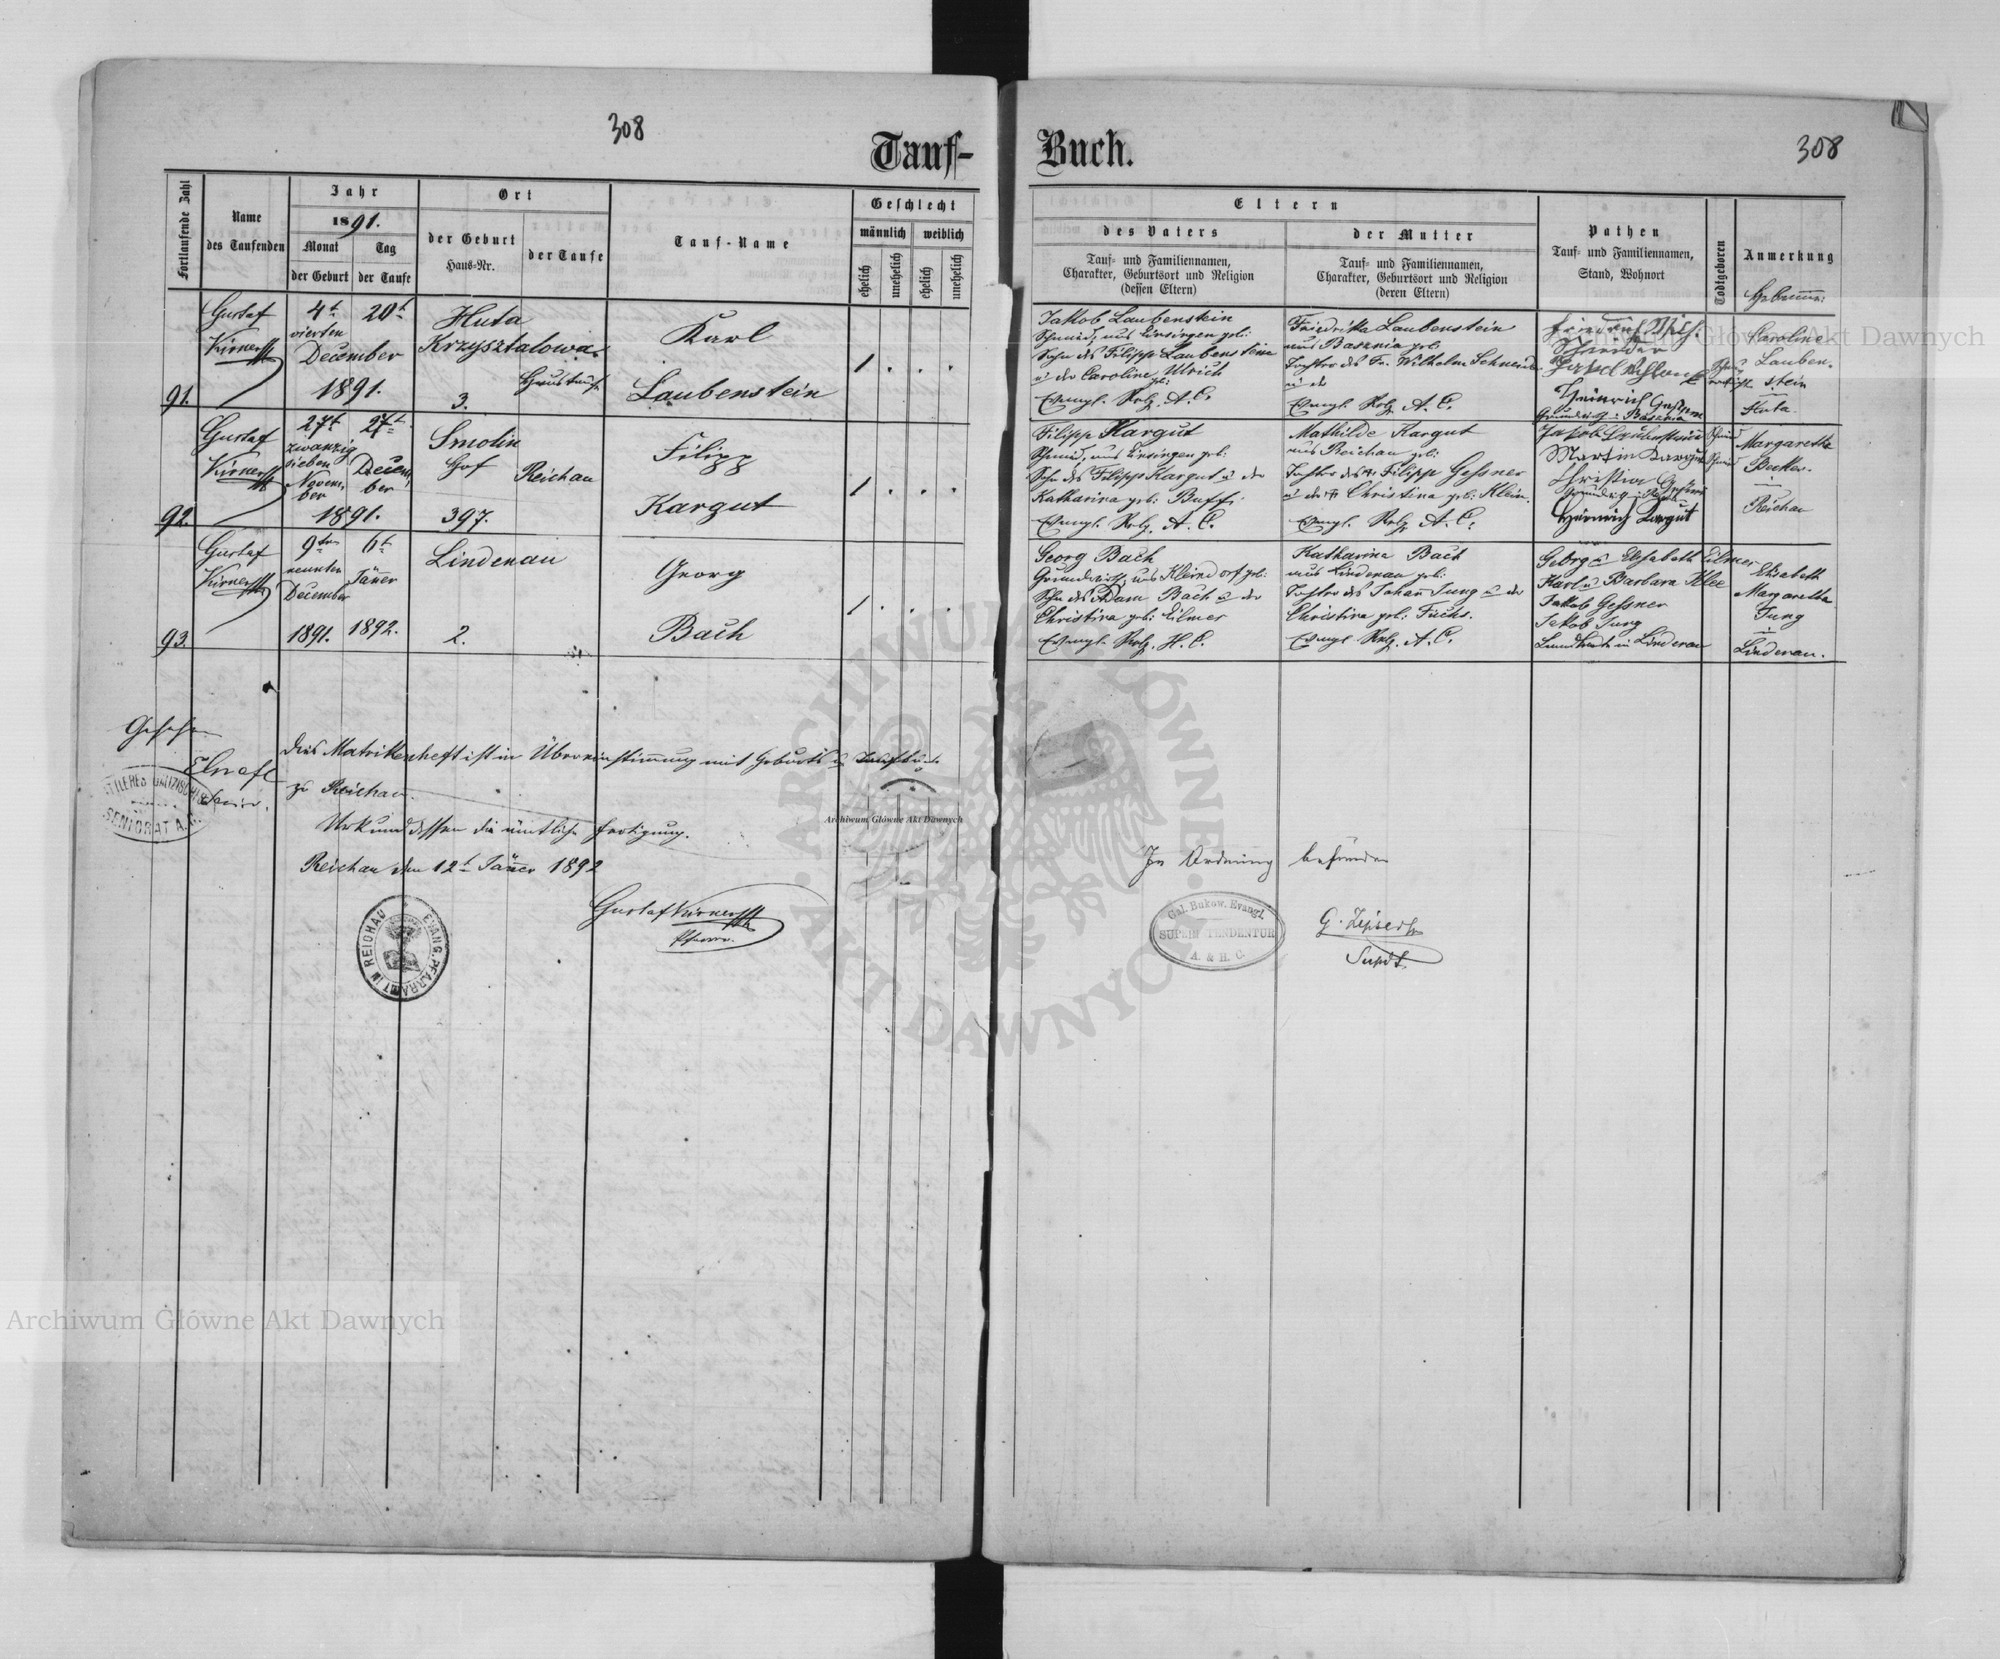 308
Tauf-
Buch.
308
Fortlaufende Zahl
Name
des Taufenden
Jahr
1891.
Monat
der Geburt
Tag
der Taufe
Ort
der Geburt
Haus-Nr.
der Taufe
Tauf-Name
Geschlecht
männlich
weiblich
ehelich
unehelich
ehelich
unehelich
Eltern
des Vaters
Tauf- und Familiennamen,
Charakter, Geburtsort und Religion
(dessen Eltern)
der Mutter
Tauf- und Familiennamen,
Charakter, Geburtsort und Religion
(deren Eltern)
Pathen
Tauf- und Familiennamen,
Stand, Wohnort
Todtgeboren
Anmerkung
91.
Gustaf
4t
vierten
December
1891.
20t
Huta
Krzysztalowa.
3.
Haustaufe
Karl
Laubenstein
1 . . .
Jakob Laubenstein
Schmied, aus Einsingen geb:
Sohn des Filipp Laubenstein
u der Caroline geb: Ulrich
Evangl. Relg. A. C.
Friedrika Laubenstein
aus Basznia geb:
Tochter des Fr. Wilhelm Schneider
Evangl. Relg. A. C.
Schneider
Heinrich Gessner
Caroline
Lauben-
stein
Huta
92.
Gustaf
27t
zwanzig
sieben
Novem-
ber
1891.
27t
Decem-
ber
Smolin
Hof
397.
Reichau
Filipp
Kargut
1 . . .
Filipp Kargut
Schmied, aus Einsingen geb:
Sohn des Filipp Kargut u der
Katharina geb: Buff.
Evangl. Relg. A. C.
Mathilde Kargut
aus Reichau geb:
Tochter des Filipp Gessner
u der Christina geb: Klein.
Evangl. Relg. A. C.
Jakob Laubenstein
Martin Kargut
Christian Gessner
Heinrich Kargut
Margaretha
Becker
Reichau
93.
Gustaf
9ten
neunten
December
1891.
6t
Jäner
1892.
Lindenau
2.
Georg
Bach
1 . . .
Georg Bach
Grundwirth, aus Kleindorf geb:
Sohn des Adam Bach u der
Christina geb: Eilmer
Evangl. Relg. H. C.
Katharina Bach
aus Lindenau geb:
Tochter des Johann Jung u der
Christina geb: Fuchs.
Evangl. Relg. A. C.
Georg u Elisabeth Eilmer
Karl u Barbara Klee
Jakob Gessner
Jakob Jung
Landwirte in Lindenau
Elisabeth
Margaretha
Jung
Lindenau.
Gesehen
Senior.
SENIORAT A.
Dies Matrikenheft ist in Übereinstimmung mit Geburts u Taufbuche
zu Reichau.
Urkunddessen die ämtliche Fertigung.
Reichau den 12t Jäner 1892
Gustaf
Pfarrer.
EVANG. PFARRAMT IN REICHAU
In Ordnung befunden
Gal. Bukow. Evangl.
SUPERINTENDENTUR
A. & H. C.
Supdt
Archiwum Główne Akt Dawnych
ARCHIWUM GŁÓWNE AKT DAWNYCH
Archiwum Główne Akt Dawnych
Archiwum Główne Akt Dawnych